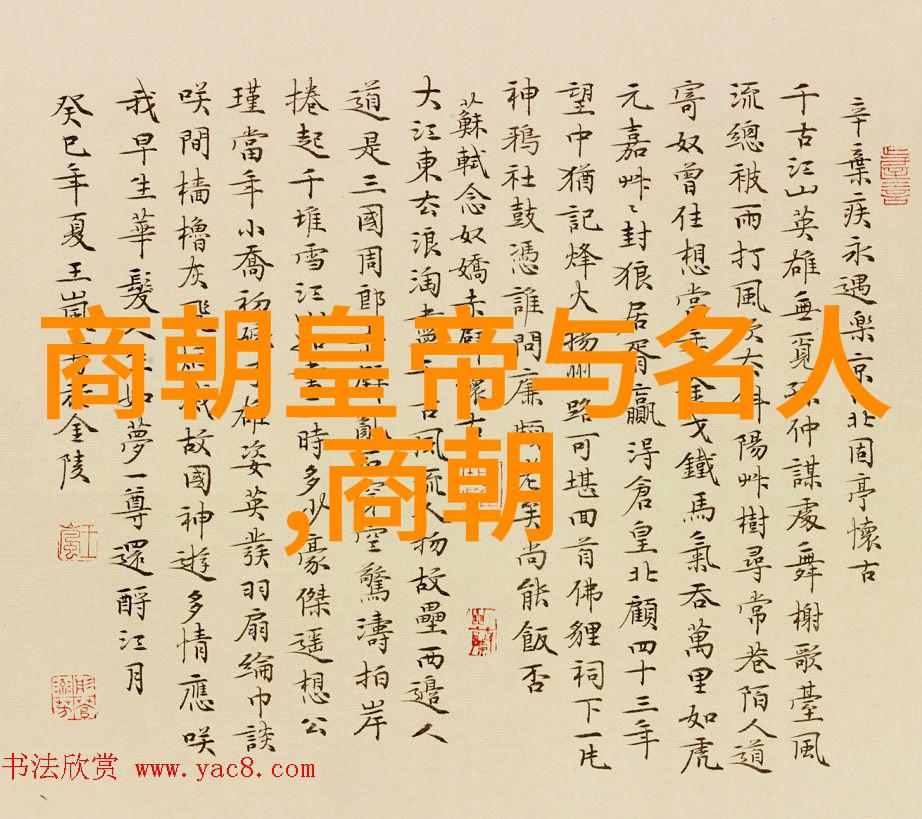 辛棄疾永遇樂京北固亭懷古
千古江山英雄無覓孫仲謀處舞榭歌臺風
流總被雨打風吹去斜陽艸樹尋常巷陌人道
寄奴曾住想當年金戈鐵馬氣吞萬里如虎
元嘉艸々封狼居胥贏得倉皇北顧四十三年
望中猶記烽火揚州路可堪回首佛貍祠下一片
神鴉社鼓憑誰問廉頗老矣尚能飯否
蘇軾念奴嬌赤壁懷古
大江東去浪淘盡千古風流人物故壘西邊人
道是三國周郎赤壁亂石穿空驚濤拍岸
捲起千堆雪江山如畫一時多少豪傑遙想公
瑾當年小喬初嫁了雄姿英發羽扇綸巾談
咲間檣櫓灰飛煙滅故國神遊多情應咲
我早生華髮人生如夢一尊還酹江月
癸巳年夏王嵐金陵
商朝皇帝与名人
,商朝
书法欣赏 www.yac8.com